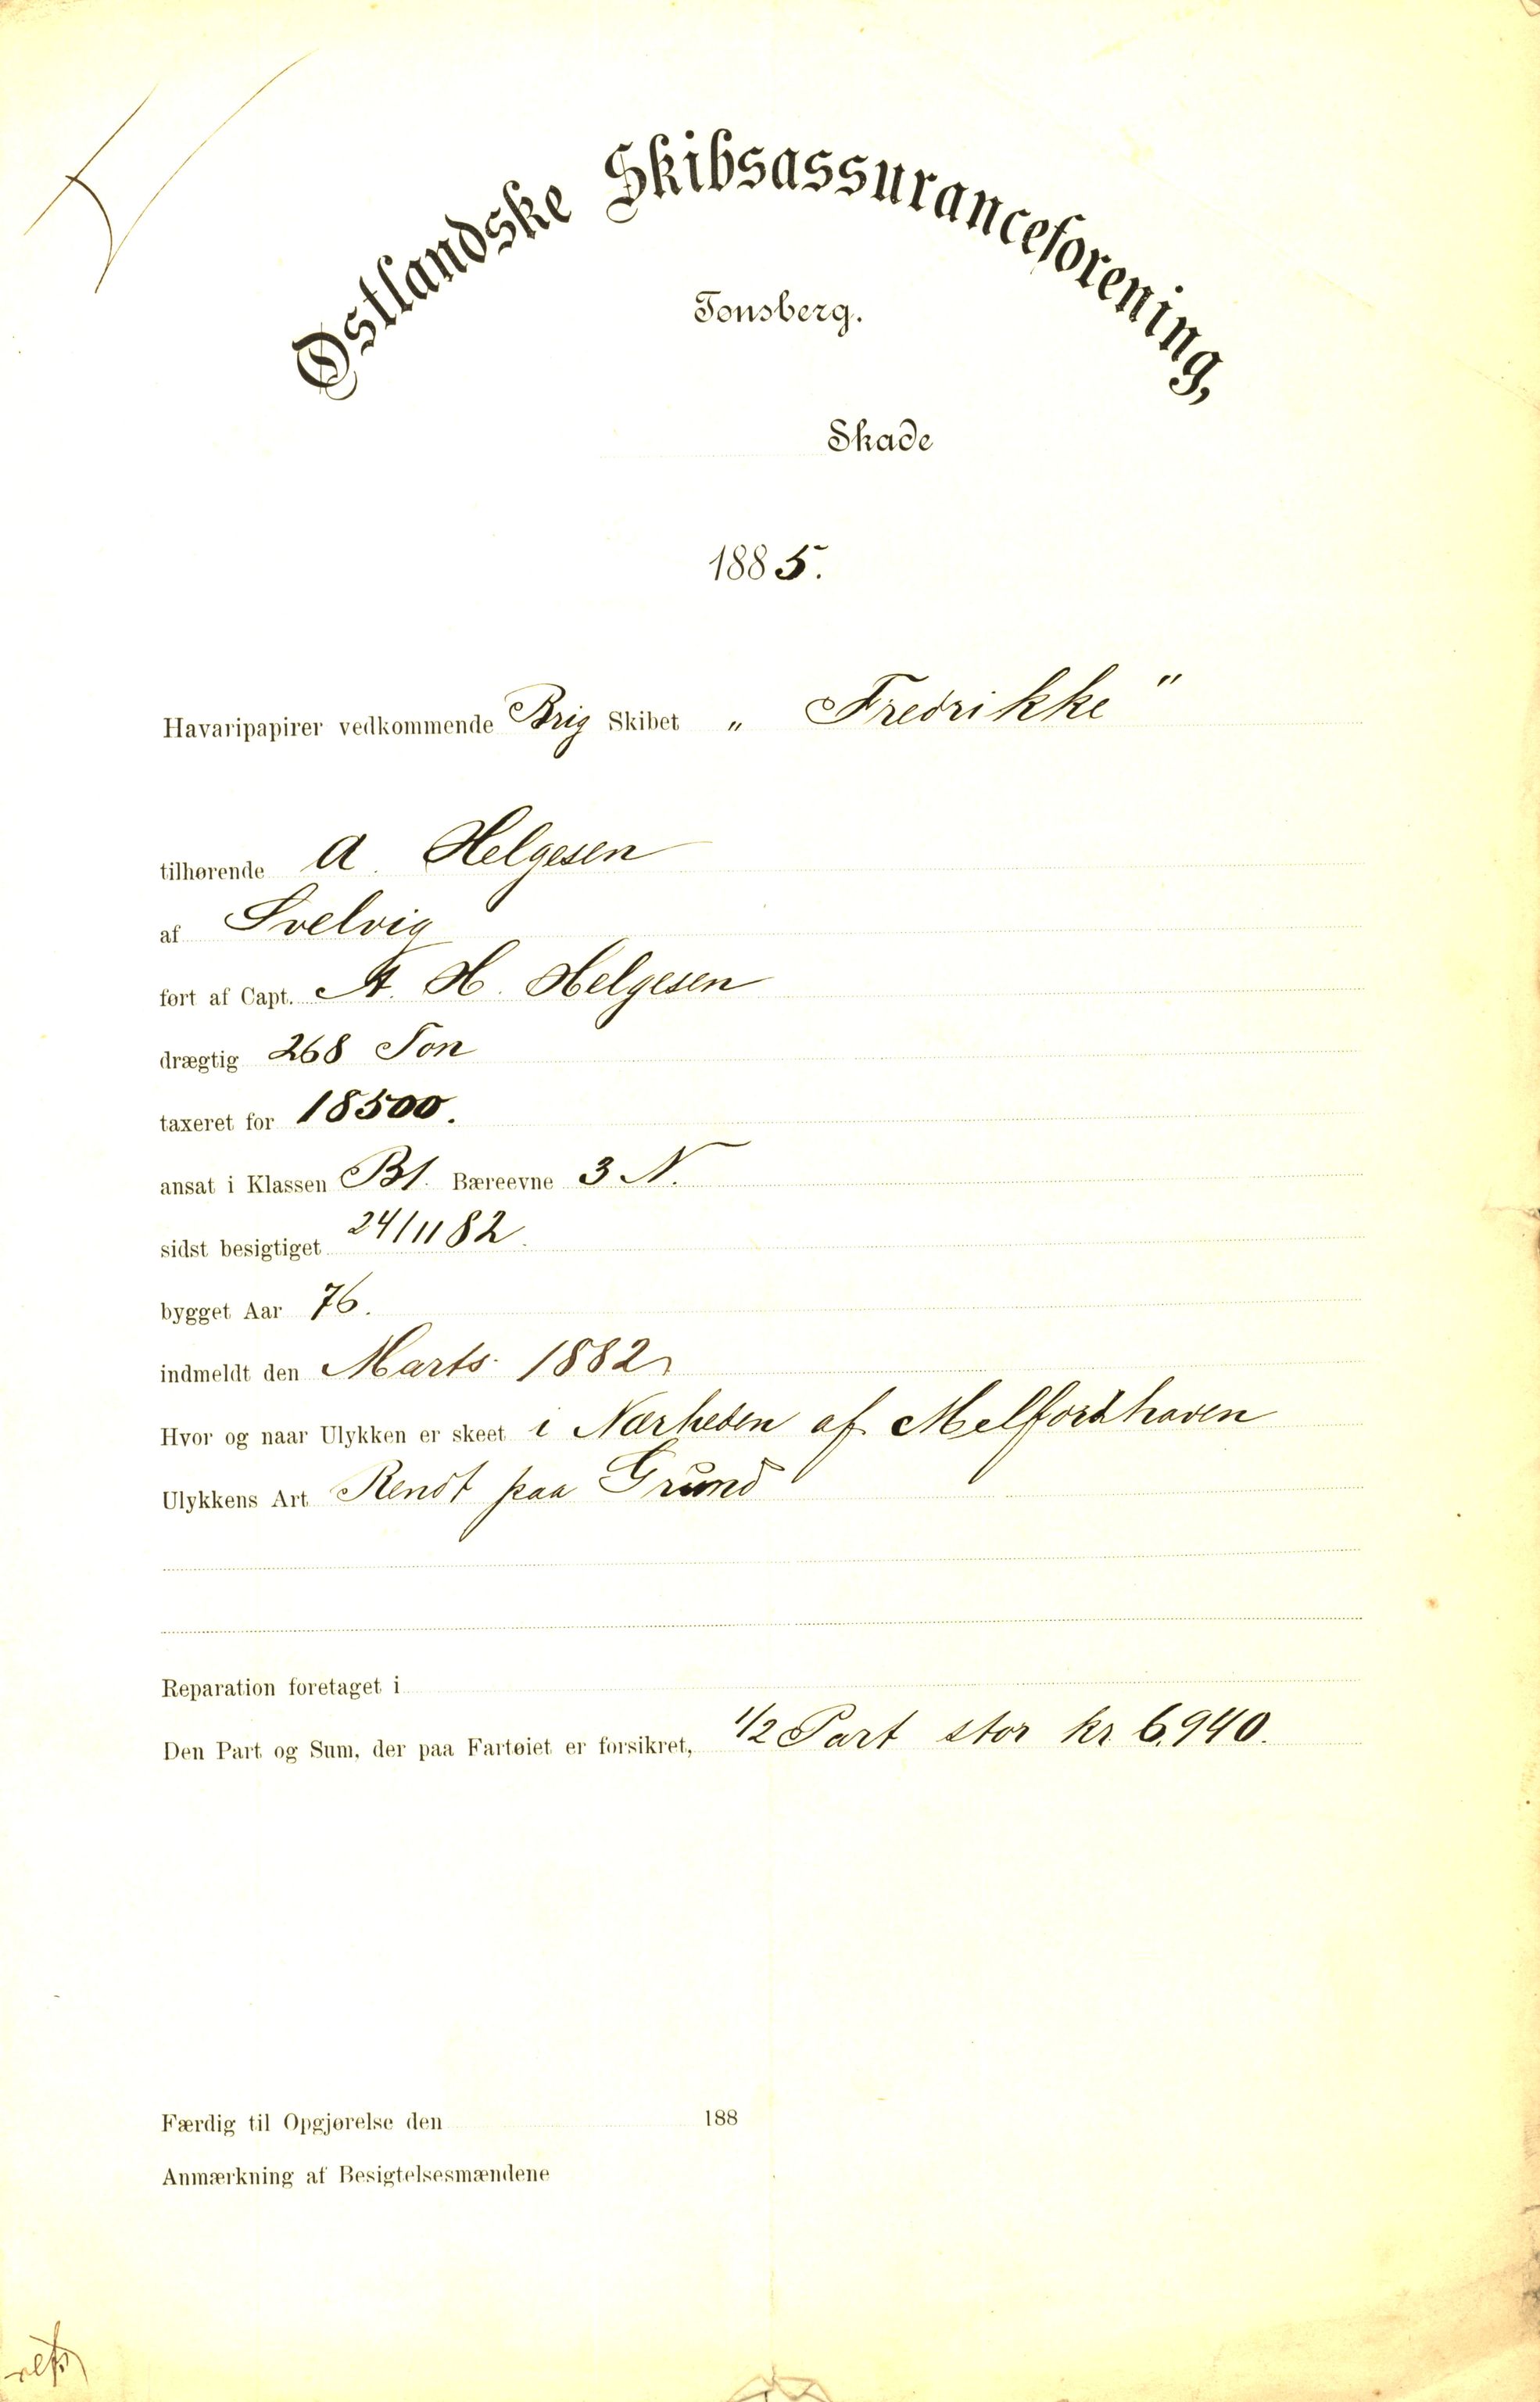 Østlandske Skibsassuranceforening,
Tønsberg.
Skade
1885.
Havaripapirer vedkommende Brig Skibet „ Fredrikke "
tilhørende A. Helgesen
af Svelvig
ført af Capt. A. H. Helgesen
drægtig 268 Ton
taxeret for 18500.
ansat i Klassen B1. Bæreevne 3 N.
sidst besigtiget 24/11 82.
bygget Aar 76.
indmeldt den Marts 1882
Hvor og naar Ulykken er skeet i Nærheden af Melfordhaven
Ulykkens Art Rendt paa Grund
Reparation foretaget i
Den Part og Sum, der paa Fartøiet er forsikret, 1/2 Part stor kr. 6,940.
Færdig til Opgjørelse den 188
Anmærkning af Besigtelsesmændene